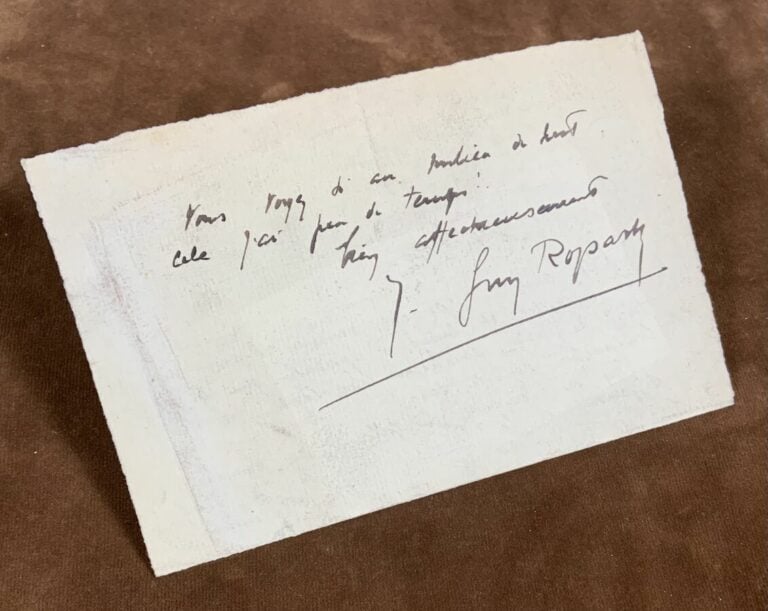 Vous voyez si au milieu de tout
cela j'ai peu de temps!
bien affectueusement
J. Guy Ropartz